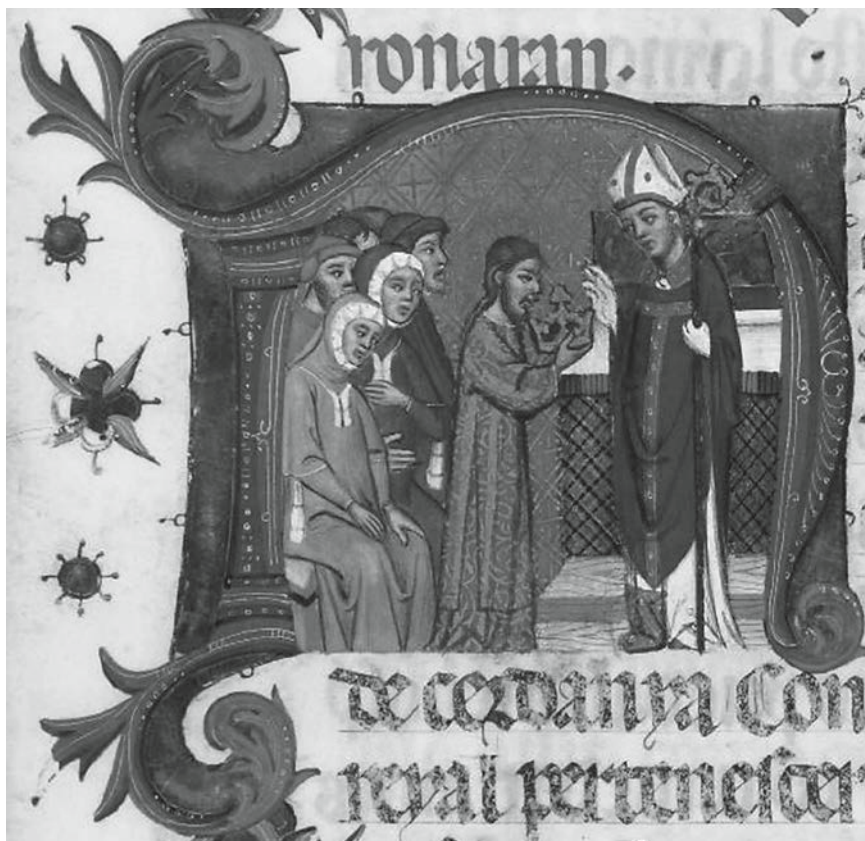 ronaran.
de cerdanya Con
reyal pertenescer